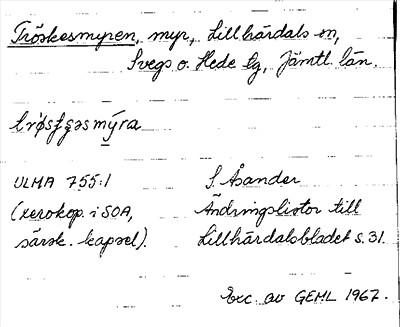 Tröskesmyren, myr, Lillhärdals sn,
Svegs o. Hede tg, Jämtl. län.
ULMA 755:1 S. Åsander
(xerokop. i SOA, Ändringslistor till
särsk. kapsel). Lillhärdalsbladet s. 31.
Exc. av GEML 1967.